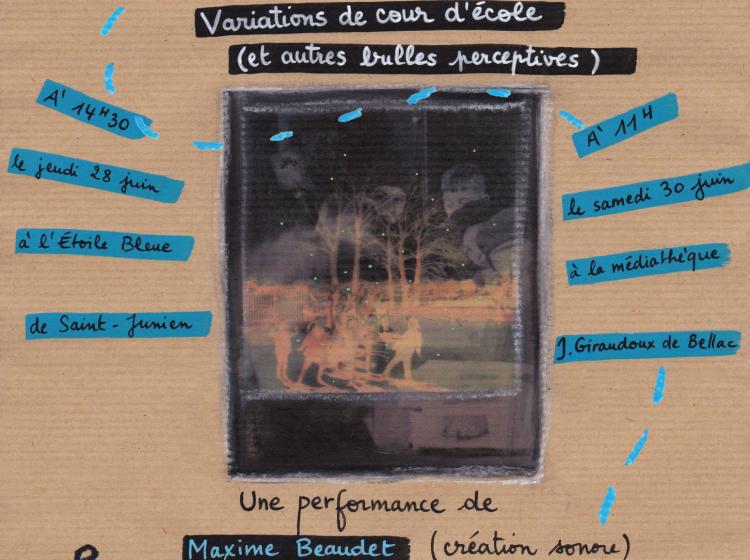 Variations de cour d'école
(et autres bulles perceptives)
A' 14H30
le jeudi 28 juin
à l'Étoile Bleue
de Saint-Junien
A' 11H
le samedi 30 juin
à la médiathèque
J. Giraudoux de Bellac
Une performance de
Maxime Beaudet (création sonore)